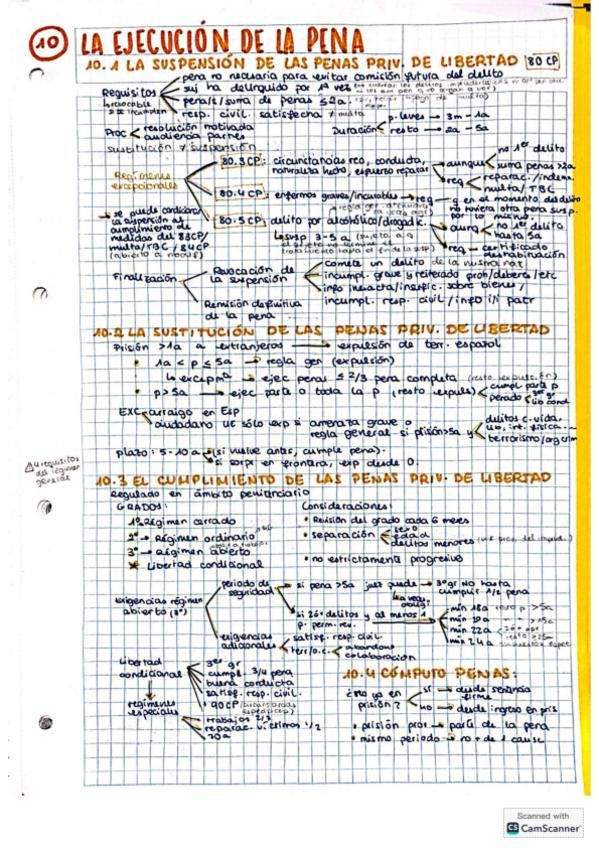 10 LA EJECUCIÓN DE LA PENA
10.1 LA SUSPENSIÓN DE LAS PENAS PRIV. DE LIBERTAD 80 CP
Requisitos
pena no necesaria para evitar comisión futura del delito
suj ha delinquido por 1ª vez
pena/s/suma de penas ≤2a
resp. civil. satisfecha
Proc
resolución motivada
audiencia partes
Duración
p. leves → 3m - 1a
resto → 2a - 5a
sustitución ≠ suspensión
Regímenes excepcionales
80.3 CP: circunstancias reo, conducta,
naturaleza hecho, esfuerzo reparar
aunque
no 1er delito
suma penas >2a
req
reparac./indem
multa/TBC
80.4 CP: enfermos graves/incurables → req
q en el momento del delito
no tuviera otra pena susp.
por lo mismo.
80.5 CP: delito por alcohólico/drogadic
aunq
no 1er delito
hasta 5a
req → certificado
deshabituación
susp 3-5 a
→ se puede condicionar
la suspensión al
cumplimiento de
medidas del 83CP/
multa/TBC / 84CP
Finalización
Revocación de
la suspensión
comete un delito
incumpl. grave y reiterado proh/deberes/etc
info inexacta/insufic. sobre bienes/
incumpl. resp. civil/info
Remisión definitiva
de la pena
10.2 LA SUSTITUCIÓN DE LAS PENAS PRIV. DE LIBERTAD
Prisión >1a a extranjeros → expulsión de terr. español
• 1a < p ≤ 5a → regla gen (expulsión)
↳ excpmª → ejec penas ≤ 2/3 pena completa
• p > 5a → ejec parte o toda la p (resto expuls)
cumpl parte p
3er gr
lib cond
EXC
arraigo en Esp
ciudadano UE sólo exp si amenaza grave o
regla general si prisión >5a y
delitos c. vida,
terrorismo/org crim
plazo: 5-10 a
(si vuelve antes, cumple pena).
si sorpr en frontera, exp desde 0.
4 requisitos
del régimen
general
10.3 EL CUMPLIMIENTO DE LAS PENAS PRIV. DE LIBERTAD
Regulado en ámbito penitenciario
GRADOS:
1º Régimen cerrado
2º → Régimen ordinario
3º → Régimen abierto
* Libertad condicional
Consideraciones:
• Revisión del grado cada 6 meses
• separación
sexo
edad
delitos menores
• no estrictamente progresivo
exigencias régimen
abierto (3º)
periodo de
seguridad
si pena >5a juez puede → 3º gr NO hasta
cumplir 1/2 pena
si 2 o + delitos y al menos 1
p. perm. rev.
min 18a
min 22a
min 24a
exigencias
adicionales
satisf. resp. civil.
terr/o.c.
abandono
colaboración
Libertad
condicional
3er gr
cumpl. 3/4 pena
buena conducta
satisf. resp. civil.
90CP
regímenes
especiales
trabajos 2/3
reparac. víctimas 1/2
70a
10.4 CÓMPUTO PENAS:
¿no ya en
prisión?
sí → desde sentencia
firme
no → desde ingreso en pris
• prisión prov → parte de la pena
• mismo periodo → no + de 1 causa
Scanned with
CS CamScanner